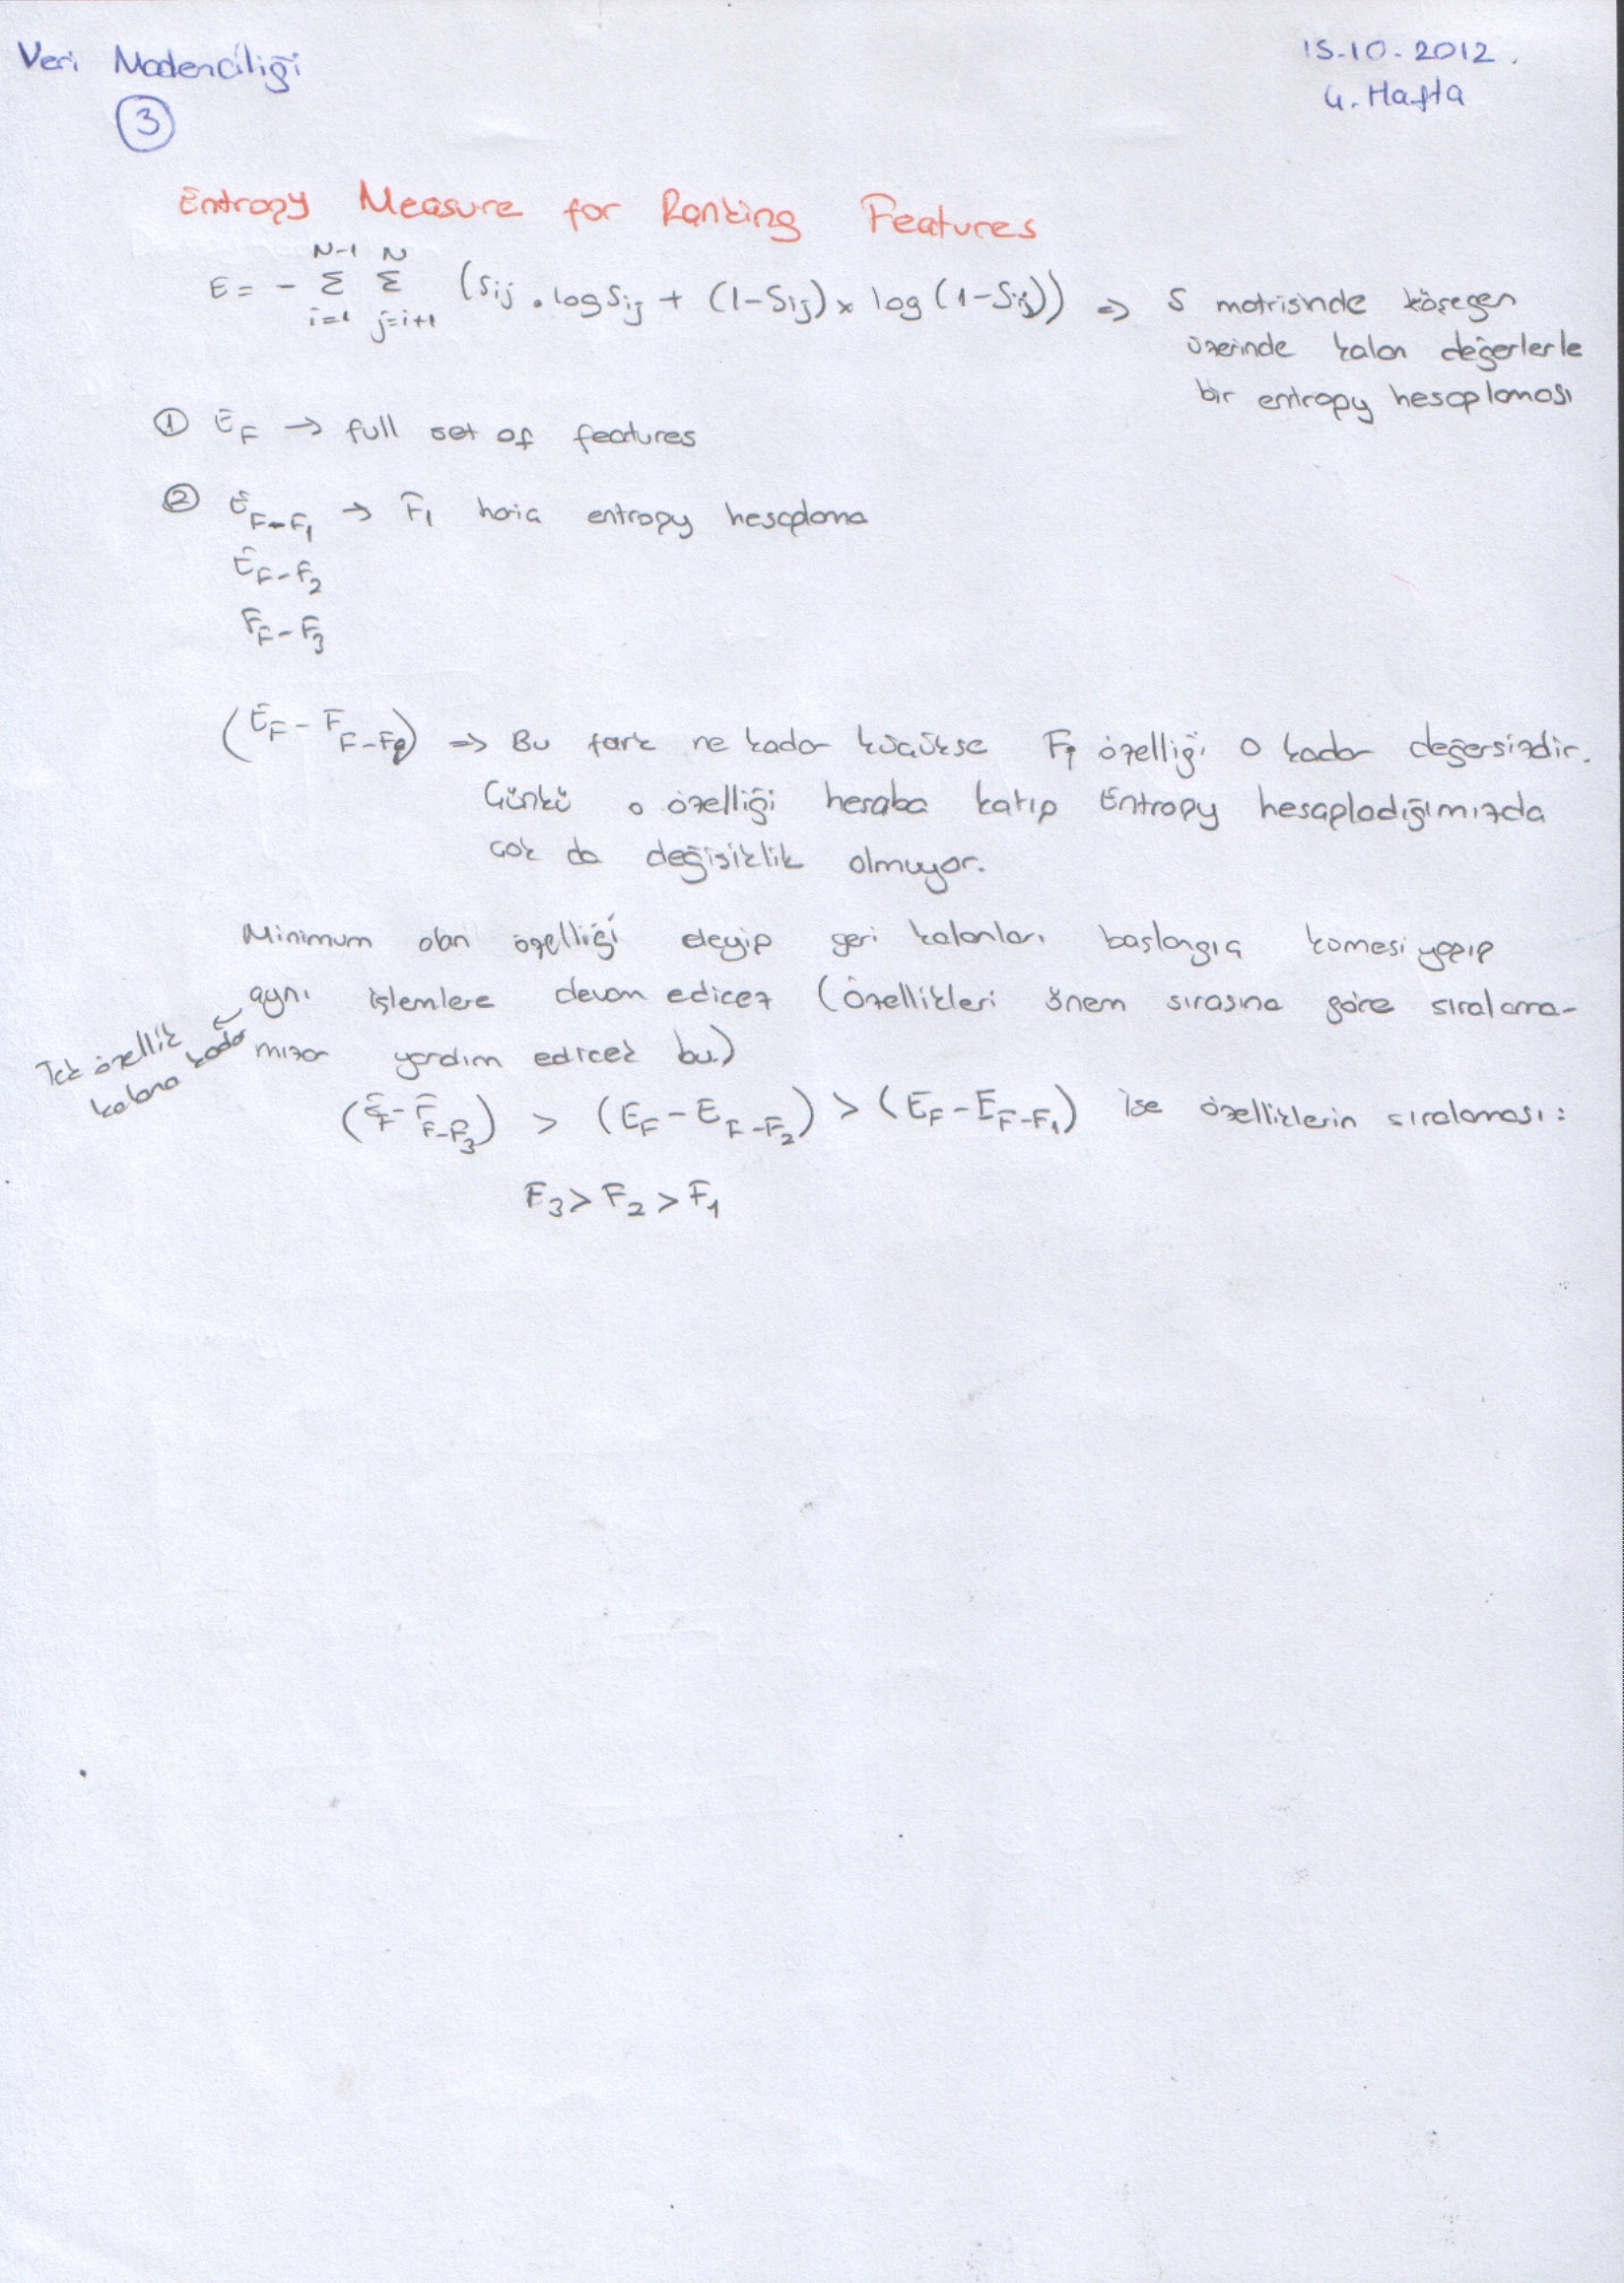 Veri Madenciliği
3
15.10.2012.
4. Hafta
Entropy Measure for Ranking Features
E = - Σ_{i=1}^{N-1} Σ_{j=i+1}^{N} (Sij . log Sij + (1-Sij) x log (1-Sij)) => S matrisinde köşegen
üzerinde kalan değerlerle
bir entropy hesaplaması
① E_F → full set of features
② E_{F-F1} → F1 hariç entropy hesaplama
E_{F-F2}
E_{F-F3}
(E_F - E_{F-Fi}) => Bu fark ne kadar küçükse Fi özelliği o kadar değersizdir.
Çünkü o özelliği hesaba katıp Entropy hesapladığımızda
çok da değişiklik olmuyor.
Minimum olan özelliği eleyip geri kalanları başlangıç kümesi yapıp
aynı işlemlere devam edicez (Özellikleri önem sırasına göre sıralama-
mıza yardım edicek bu)
Tek özellik
kalana kadar
(E_F - E_{F-F3}) > (E_F - E_{F-F2}) > (E_F - E_{F-F1}) ise özelliklerin sıralaması:
F3 > F2 > F1